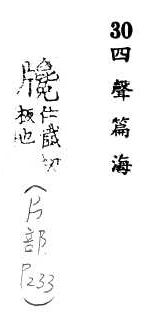 30四聲篇海
仕懺切
板也
(片部P.233)